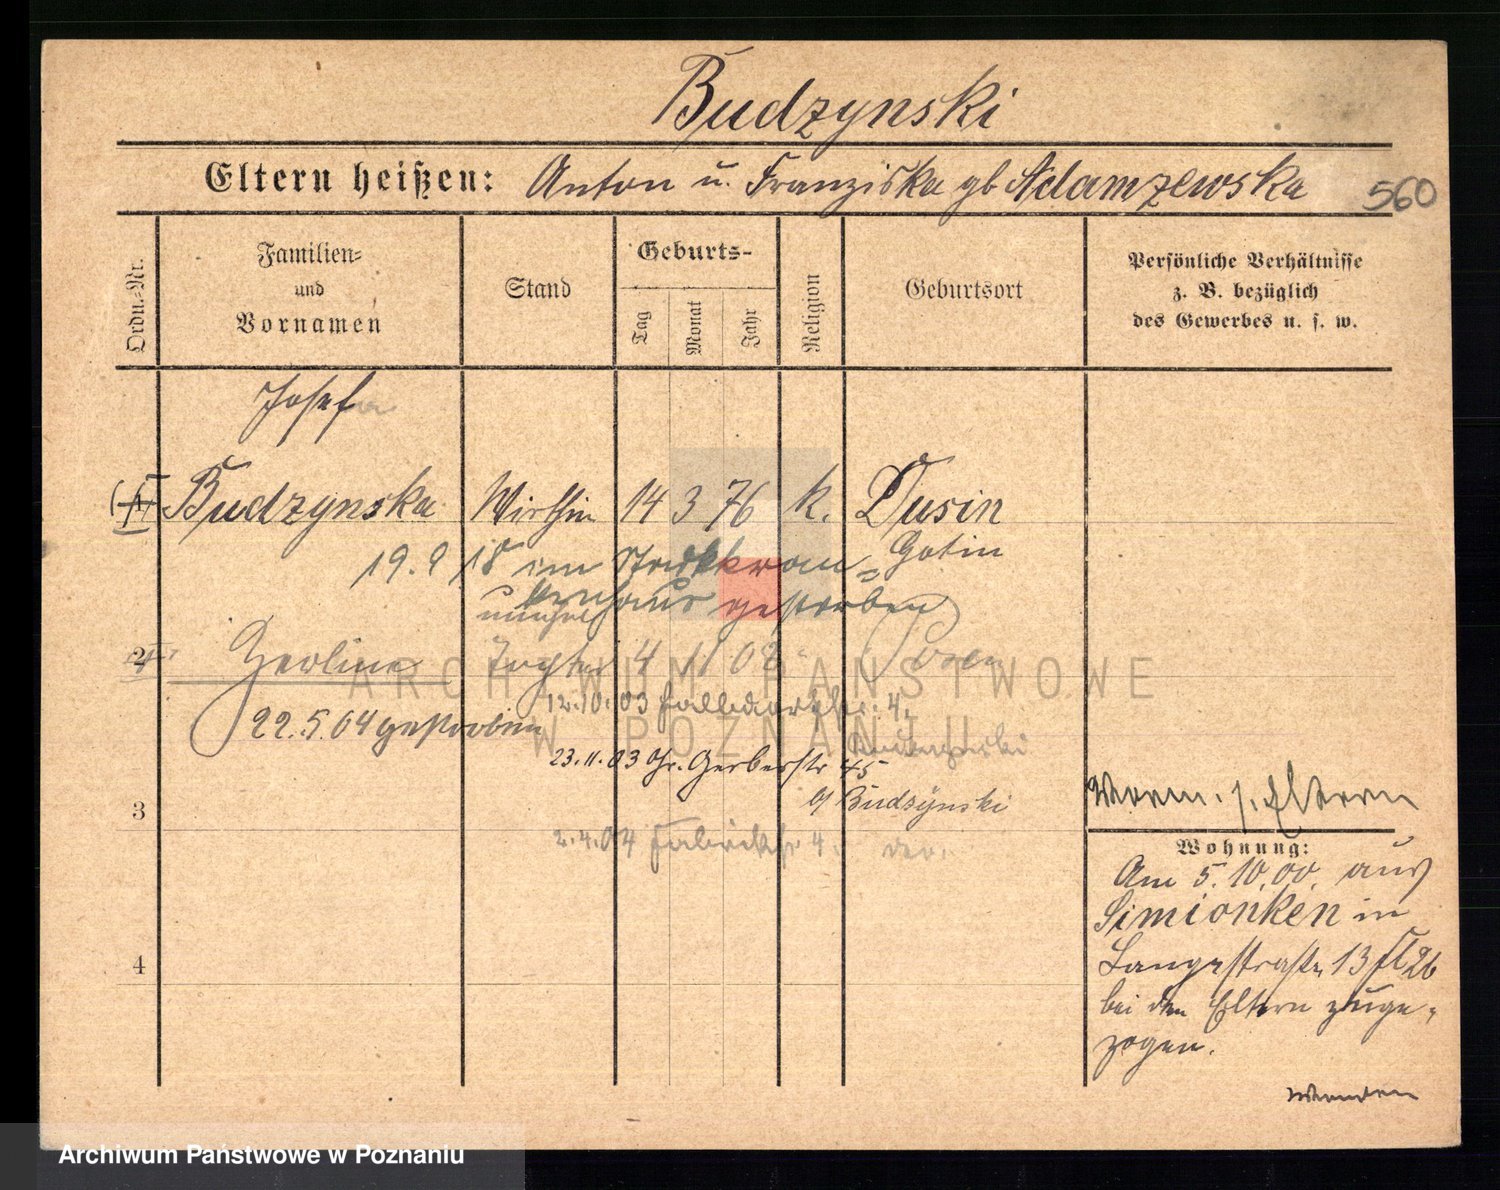 Budzynski
Eltern heißen: Anton u. Franziska gb Adamzewska 560
Ordn.-Nr.
Familien-
und
Vornamen
Stand
Geburts-
Tag
Monat
Jahr
Religion
Geburtsort
Persönliche Verhältnisse
z. B. bezüglich
des Gewerbes u. s. w.
Josefa
1 Budzynska Wirthin 14 3 76 k. Dusin
Gotin
19. 9 18 im Stadtkran=
kenhaus gestorben
unehel
2 Tochter 4 11 03 Posen
12.10.03 4.
22.5.04 gestorben
23.11.03 Gr. Gerberstr 45
b/ Budzÿnski
3
2.4.04 Fabrikstr 4.
Verm. s. Eltern
Wohnung:
Am 5.10.00. aus
Simionken in
Langestraße 13
bei den Eltern zuge-
zogen.
4
Wenden
ARCHIWUM PAŃSTWOWE
W POZNANIU
Archiwum Państwowe w Poznaniu